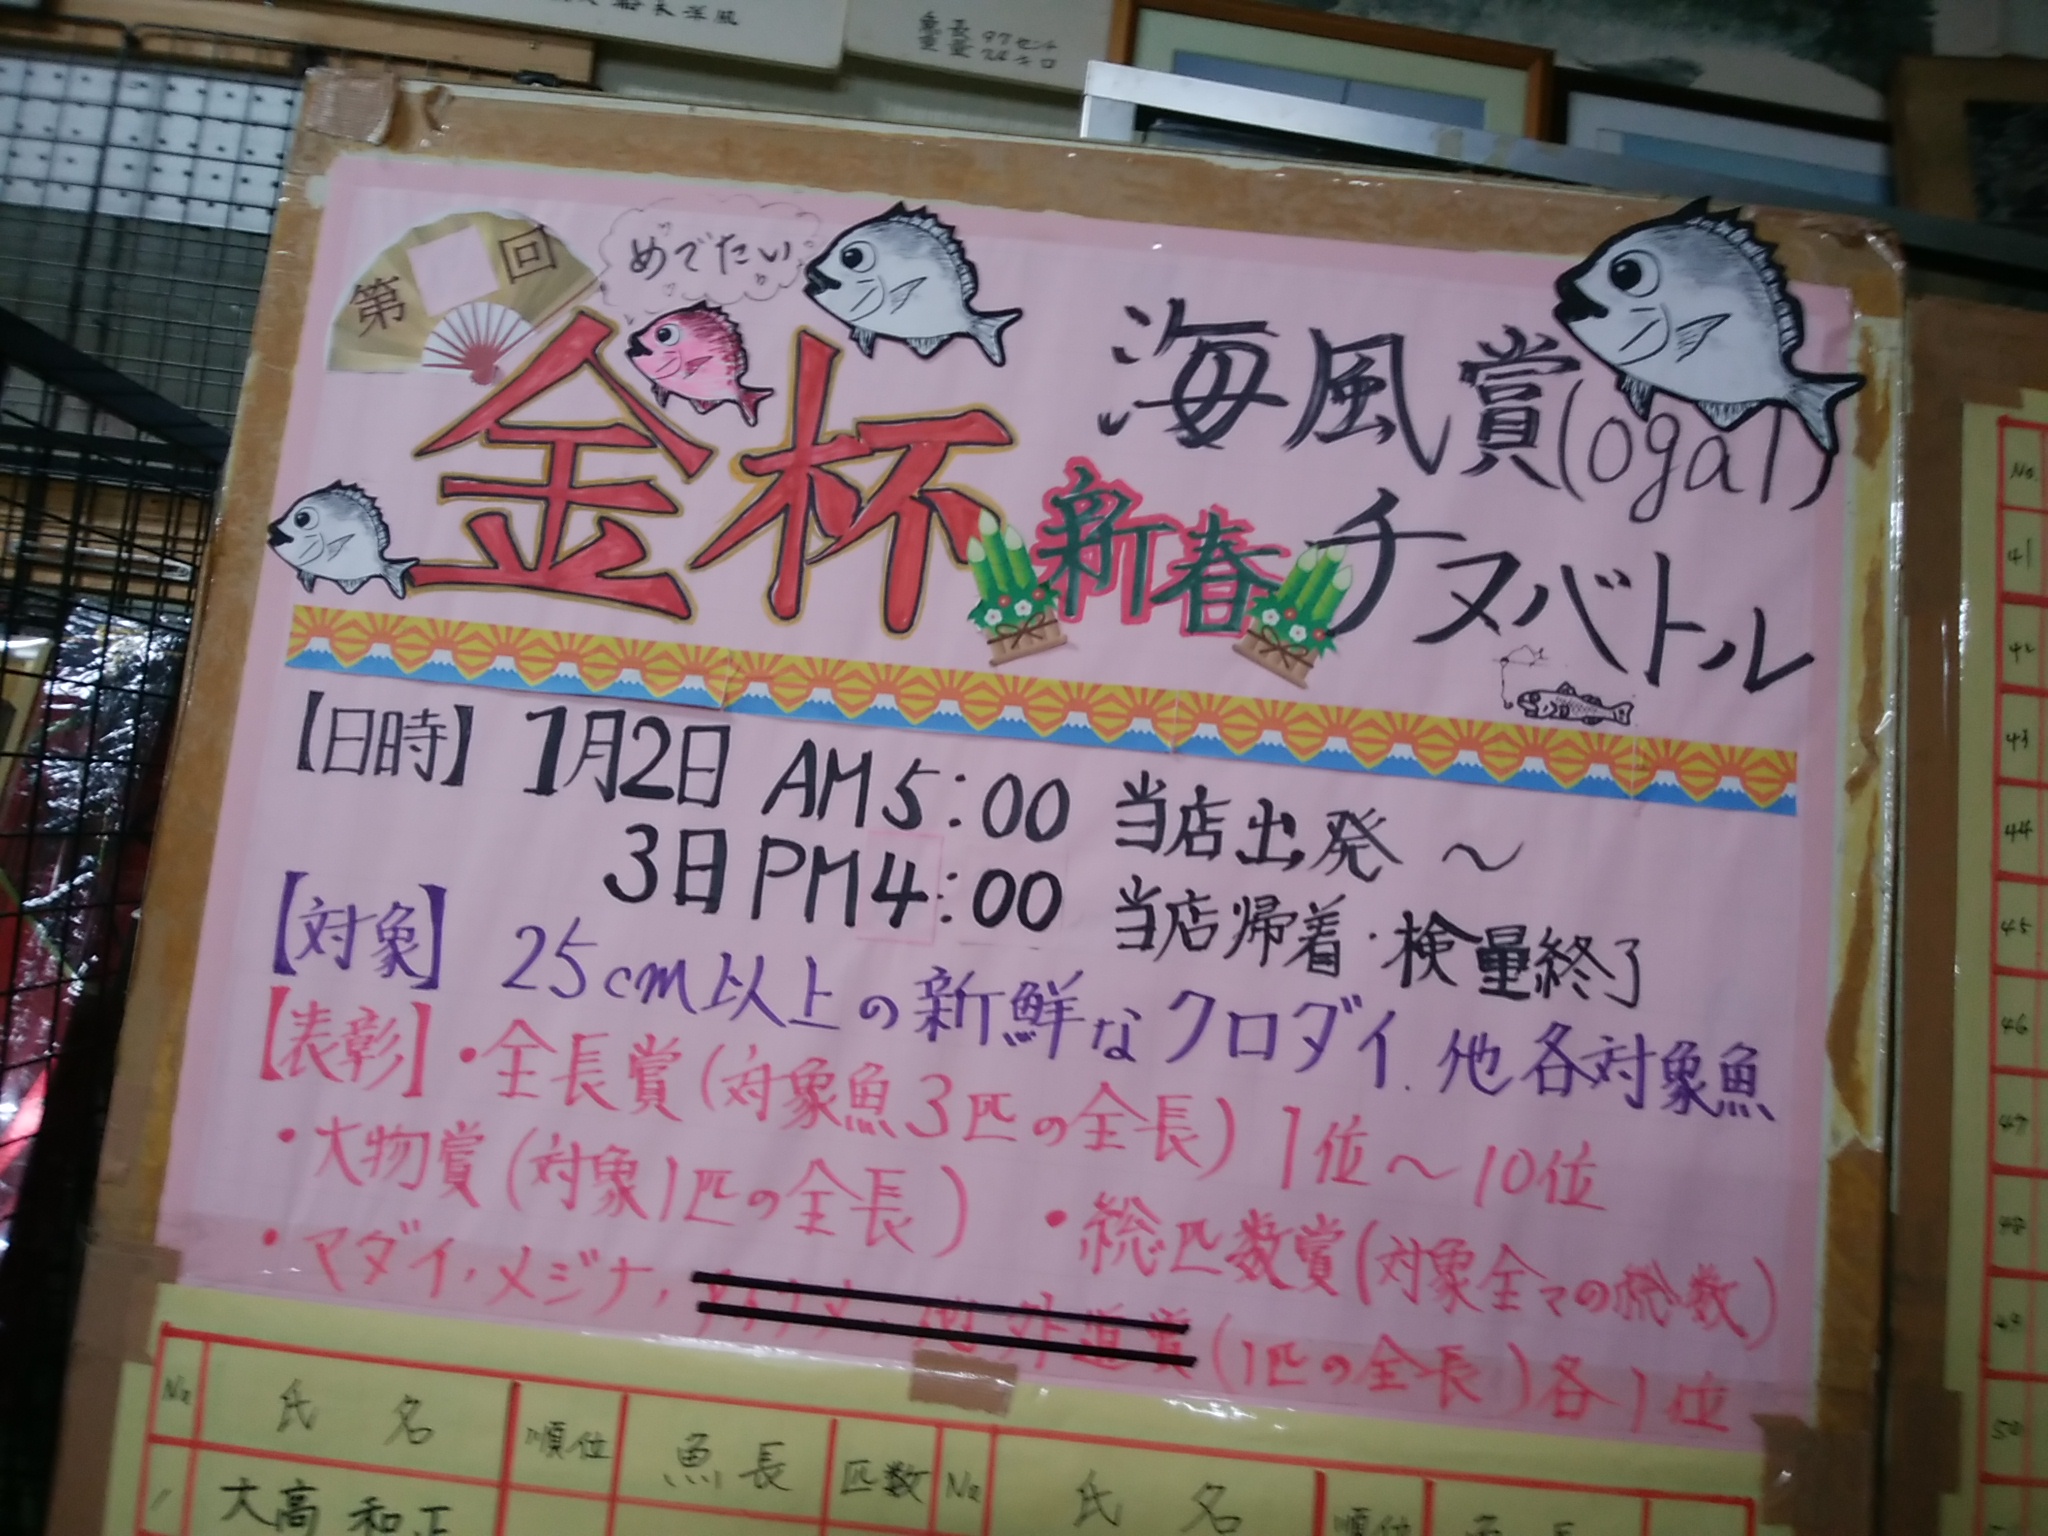 魚長 97センチ
重量 24キロ
第 回
めでたい
金杯
海風賞(ogal)
新春チヌバトル
【日時】 1月2日 AM5:00 当店出発 〜
3日 PM4:00 当店帰着・検量終了
【対象】 25cm以上の新鮮なクロダイ. 他各対象魚
【表彰】 ・全長賞(対象魚3匹の全長) 1位〜10位
・大物賞(対象1匹の全長) ・総匹数賞(対象全ての総数)
・マダイ, メジナ, 他外道賞 (1匹の全長) 各1位
No 氏 名 順位 魚長 匹数 No 氏 名 順位 魚長
1 大高 和正
No.
41
42
43
44
45
46
47
48
49
50